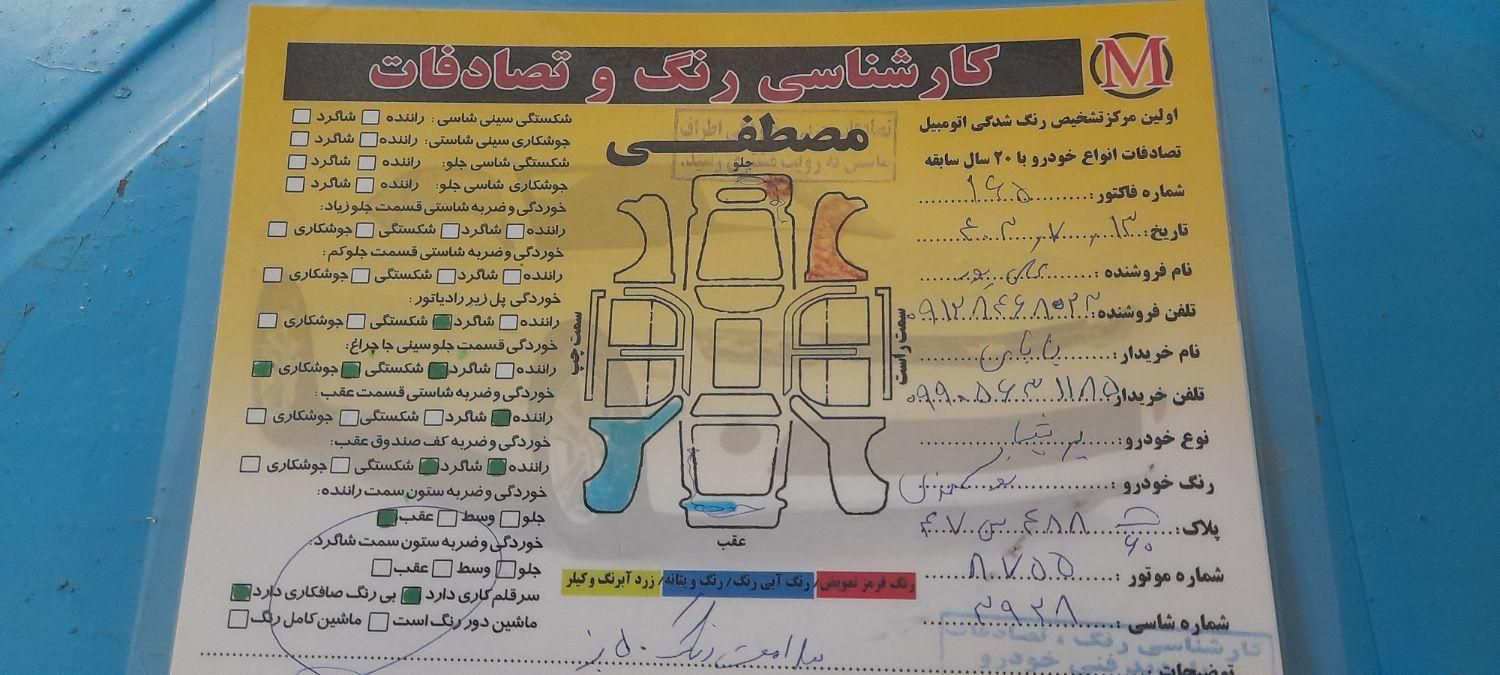 کارشناسی رنگ و تصادفات
M
اولین مرکز تشخیص رنگ شدگی اتومبیل
تصادفات انواع خودرو با ۲۰ سال سابقه
شماره فاکتور: ۱۶۵
تاریخ: ۱۳ ۷ ۴۰۳
نام فروشنده:
تلفن فروشنده: ۰۹۱۲۸۴۶۸۰۲۳
نام خریدار:
تلفن خریدار: ۰۹۹۰۵۶۳۱۱۸۵
نوع خودرو:
رنگ خودرو:
پلاک: ۴۷ س ۴۸۸
۶۰
شماره موتور: ۸۷۵۵
شماره شاسی: ۳۹۲۸
کارشناسی رنگ، تصادفات
توضیحات:
مصطفی
جلو
سمت چپ
سمت راست
عقب
رنگ قرمز تعویض/ رنگ آبی رنگ/ رنگ و بتانه/ زرد آبرنگ و کیلر
شکستگی سینی شاسی: راننده شاگرد
جوشکاری سینی شاستی: راننده شاگرد
شکستگی شاسی جلو: راننده شاگرد
جوشکاری شاسی جلو: راننده شاگرد
خوردگی و ضربه شاستی قسمت جلو زیاد:
راننده شاگرد شکستگی جوشکاری
خوردگی و ضربه شاستی قسمت جلو کم:
راننده شاگرد شکستگی جوشکاری
خوردگی پل زیر رادیاتور:
راننده شاگرد شکستگی جوشکاری
خوردگی قسمت جلو سینی جا چراغ:
راننده شاگرد شکستگی جوشکاری
خوردگی و ضربه شاستی قسمت عقب:
راننده شاگرد شکستگی جوشکاری
خوردگی و ضربه کف صندوق عقب:
راننده شاگرد شکستگی جوشکاری
خوردگی و ضربه ستون سمت راننده:
جلو وسط عقب
خوردگی و ضربه ستون سمت شاگرد:
جلو وسط عقب
سرقلم کاری دارد بی رنگ صافکاری دارد
ماشین دور رنگ است ماشین کامل رنگ